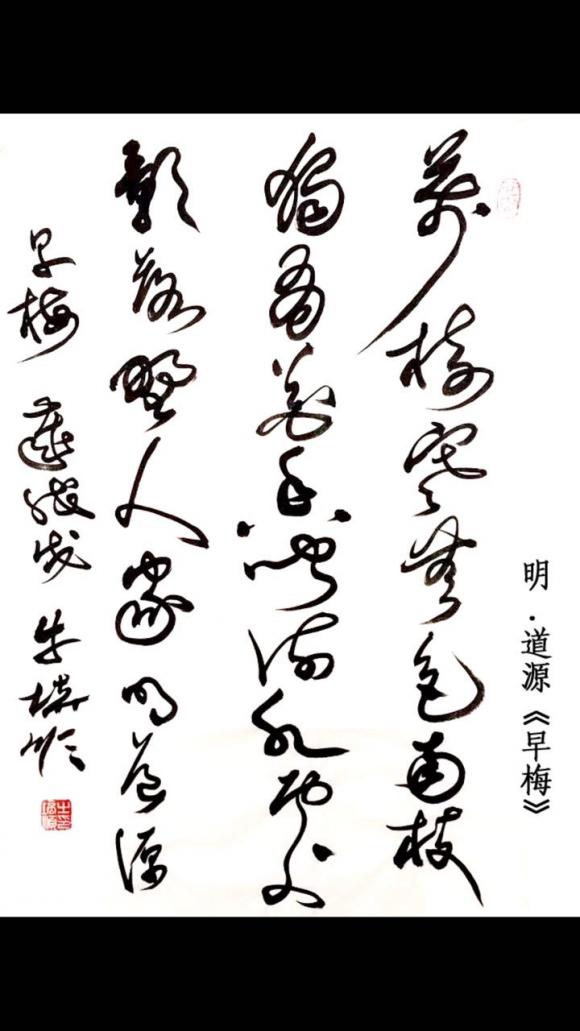 明·道源《早梅》
萬樹寒無色南枝
獨有花香聞流水處
影落野人家明道源
早梅